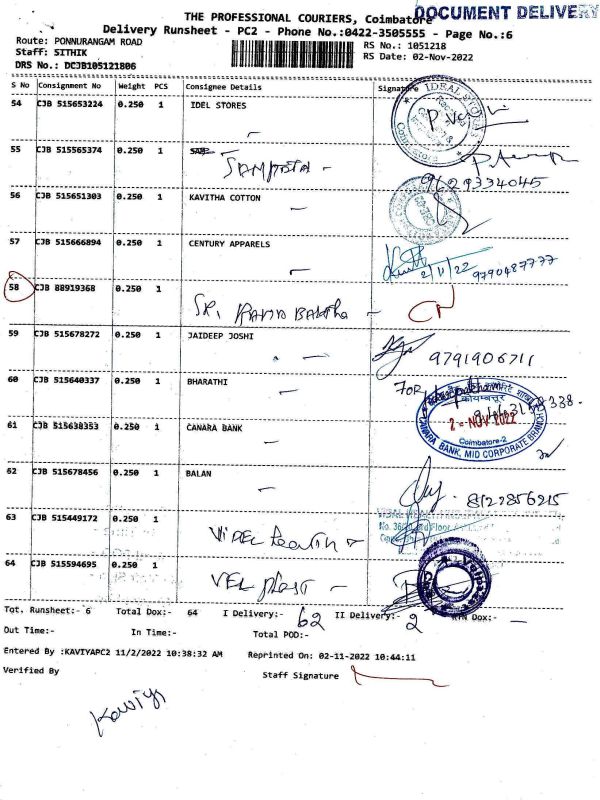 DOCUMENT DELIVERY
THE PROFESSIONAL COURIERS, Coimbatore
Delivery Runsheet - PC2 - Phone No.:0422-3505555 - Page No.:6
Route: PONNURANGAM ROAD
RS No.: 1051218
Staff: SITHIK
RS Date: 02-Nov-2022
DRS No.: DCJB105121806
S No Consignment No Weight PCS Consignee Details Signature
54 CJB 515653224 0.250 1 IDEL STORES
55 CJB 515565374 0.250 1
9629334045
56 CJB 515651303 0.250 1 KAVITHA COTTON
57 CJB 515666894 0.250 1 CENTURY APPARELS
2/11/22 9790487777
58 CJB 88919368 0.250 1
59 CJB 515678272 0.250 1 JAIDEEP JOSHI
9791906711
60 CJB 515640337 0.250 1 BHARATHI
FOR
61 CJB 515638353 0.250 1 CANARA BANK
NOV 2022
Coimbatore-2
CANARA BANK, MID CORPORATE BRANCH
62 CJB 515678456 0.250 1 BALAN
8122856215
63 CJB 515449172 0.250 1
64 CJB 515594695 0.250 1 VEL plast
Tot. Runsheet:- 6 Total Dox:- 64 I Delivery:- 62 II Delivery:- 2 RTN Dox:-
Out Time:- In Time:- Total POD:-
Entered By :KAVIYAPC2 11/2/2022 10:38:32 AM Reprinted On: 02-11-2022 10:44:11
Verified By
Staff Signature
Kaviya